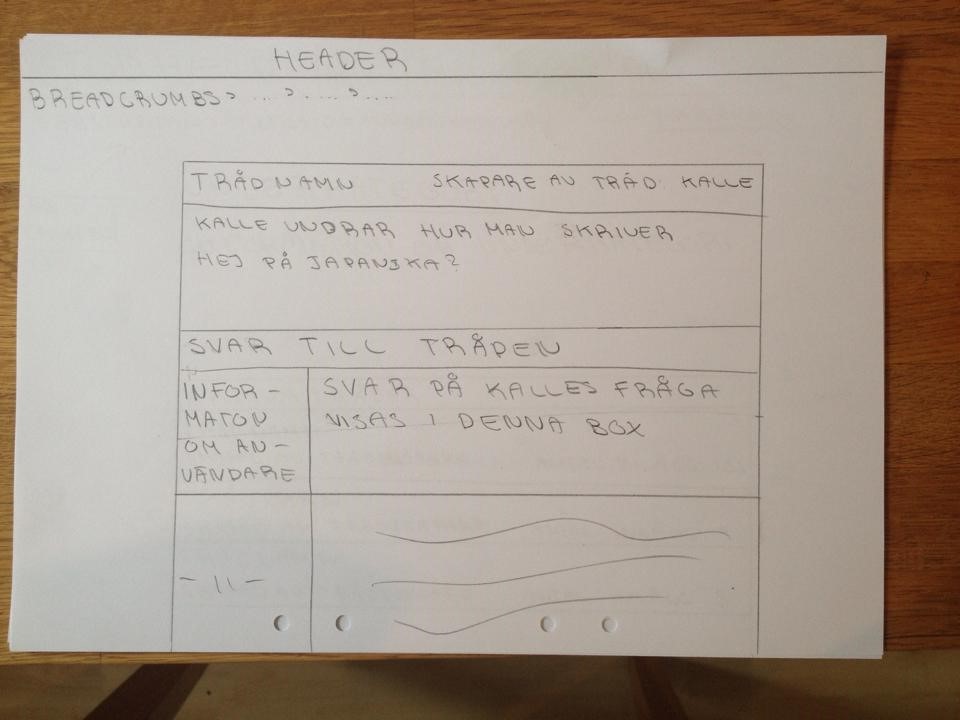 HEADER
BREADCRUMBS> ....> ....> ....
TRÅDNAMN SKAPARE AV TRÅD: KALLE
KALLE UNDRAR HUR MAN SKRIVER
HEJ PÅ JAPANSKA?
SVAR TILL TRÅDEN
INFOR-
MATON
OM AN-
VÄNDARE
SVAR PÅ KALLES FRÅGA
VISAS I DENNA BOX
- 11 -